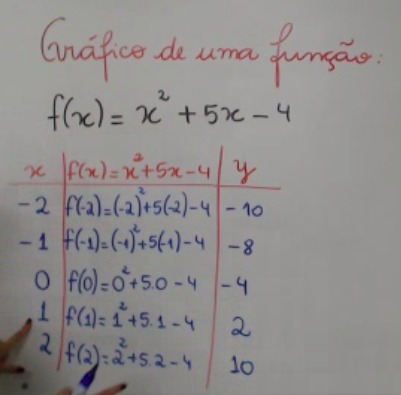 Gráfico de uma função:
f(x) = x² + 5x - 4
x f(x) = x² + 5x - 4 y
-2 f(-2) = (-2)² + 5(-2) - 4 -10
-1 f(-1) = (-1)² + 5(-1) - 4 -8
0 f(0) = 0² + 5.0 - 4 -4
1 f(1) = 1² + 5.1 - 4 2
2 f(2) = 2² + 5.2 - 4 10